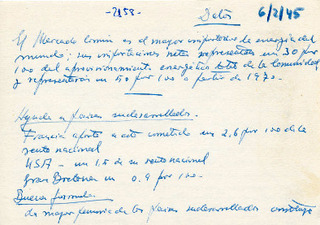 -2858-
Datos
6/2/45
El Mercado común es el mayor importador de energía del
mundo; sus importaciones netas representan un 30 por
100 del aprovisionamiento energético total de la Comunidad
y representarán un 50 por 100 a partir de 1970.
Ayuda a países subdesarrollados.
Francia aporta a este cometido un 2,6 por 100 de la
renta nacional
USA - un 1,5 de su renta nacional
Gran Bretaña un 0,9 por 100.
Buena fórmula
La mayor penuria de los países subdesarrollados